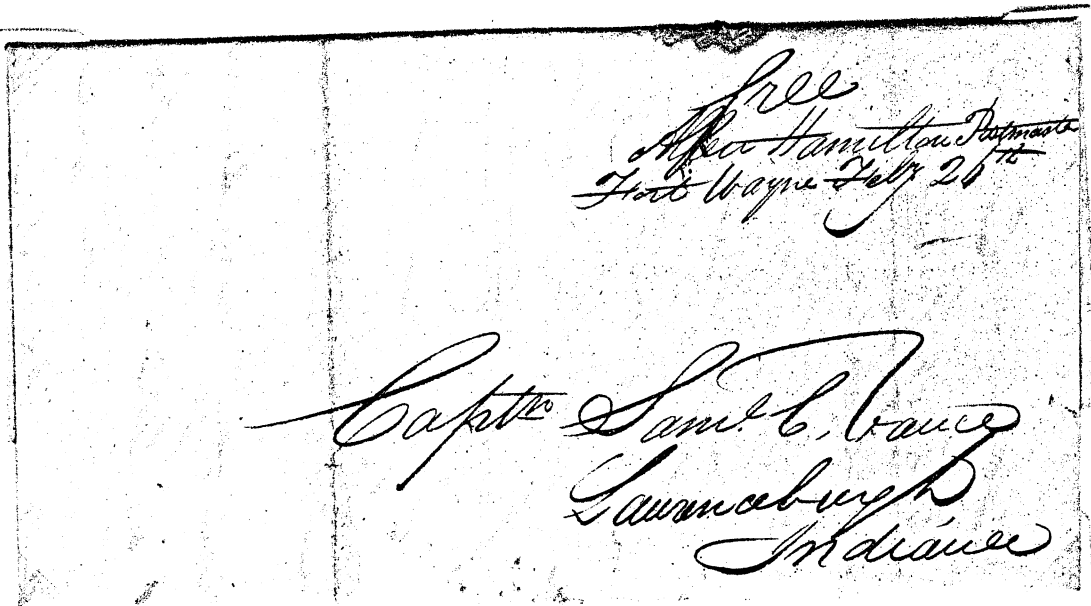 free
Allen Hamilton Postmaster
Fort Wayne Feby 26th
Captn Saml. C. Vance
Lawrenceburgh
Indiana